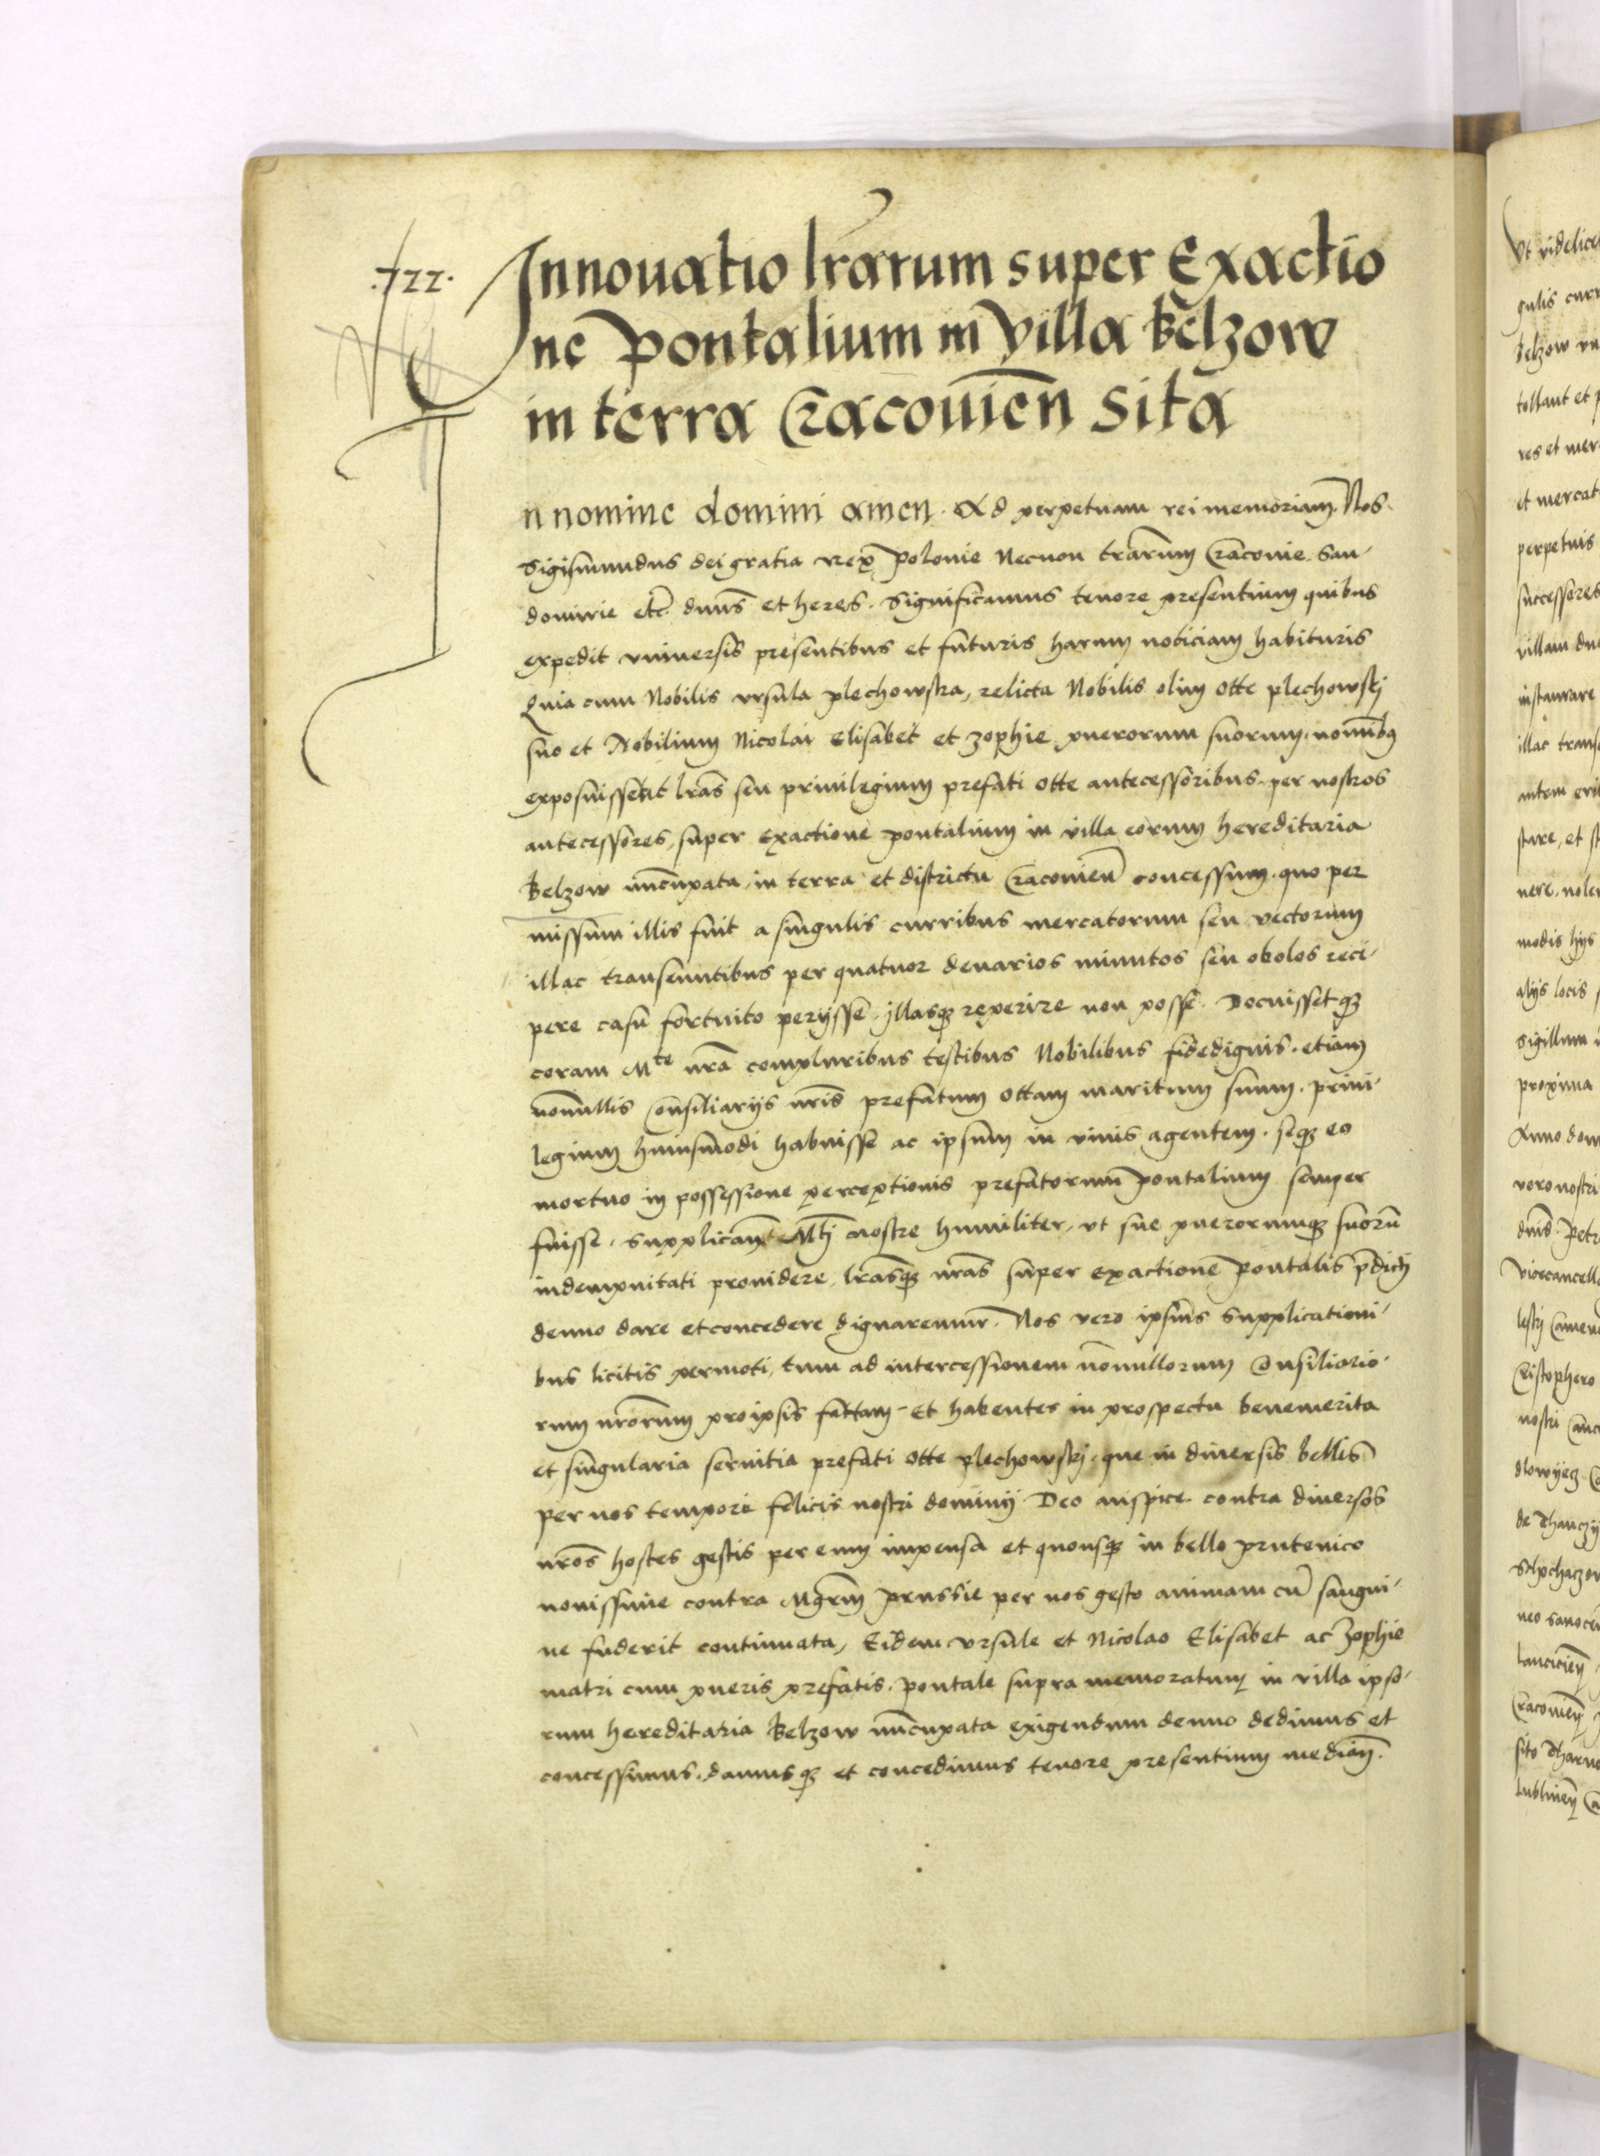 .722.
Innouatio lrarum super Exactio
ne pontalium in villa Belzow
in terra Cracouien sita
In nomine domini amen. Ad perpetuam rei memoriam. Nos
Sigismundus dei gratia Rex Polonie Necnon trarum Cracouie San-
domirie etc. dnus et heres. Significamus tenore presentium quibus
expedit vniuersis presentibus et futuris harum noticiam habituris
Quia cum Nobilis vrsula plechowska, relicta Nobilis olim Otte plechowskj
suo et Nobilium Nicolai Elisabet et zophie puerorum suorum, nominibus
exposuissent lras seu priuilegium prefati Otte antecessoribus per nostros
antecessores, super exactione pontalium in villa eorum hereditaria
Belzow nuncupata in terra et districtu Cracouien concessum. quo per
missum illis fuit a singulis curribus mercatorum seu vectorum
illac transeuntibus per quatuor denarios minutos seu obolos reci-
pere casu fortuito perijsse. jllasque reperire non posse. Docuissetque
coram Mte nra compluribus testibus Nobilibus fidedignis. etiam
nonnullis Consiliarijs nris prefatum Ottam maritum suum. priui-
legium huiusmodi habuisse ac ipsum in viuis agentem. seque eo
mortuo in possessione perceptionis prefatorum pontalium semper
fuisse. Supplicant Mtj nostre humiliter, vt sue puerorumque suorum
indempnitati prouidere, lrasque nras super exactione Pontalis pdictj
denuo dare et concedere dignaremur. Nos vero ipsius supplicationi-
bus licitis permoti, tum ad intercessionem nonnullorum Consiliario-
rum nrorum pro ipsis fattam. Et habentes in prospectu benemerita
et singularia seruitia prefati Otte plechowskj. que in diuersis bellis
per nos tempore felicis nostri dominij Deo auspice contra diuersos
nros hostes gestis per eum impensa et quousque in bello prutenico
nouissime contra Mgrum Prussie per nos gesto animam cum sangui-
ne fuderit continuata, Eidem vrsule et Nicolao Elisabet ac zophie
matri cum pueris prefatis. pontale supra memoratum in villa ipso-
rum hereditaria Belzow nuncupata exigendum denuo dedimus et
concessimus. damusque et concedimus tenore presentium median.